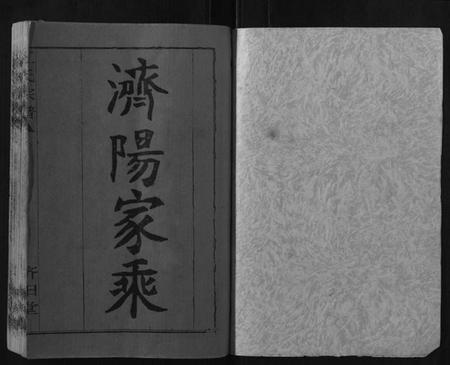 濟陽家乘